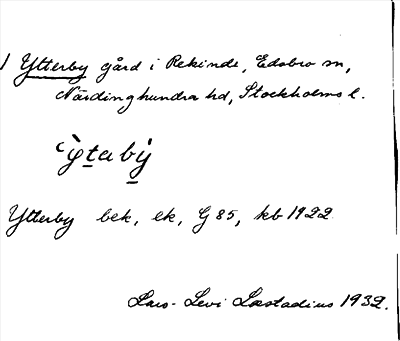 Ytterby gård i Rekinde, Edsbro sn,
Närdinghundra hd, Stockholms l.
`ÿtabÿ
Ytterby bek, ek, G 85, kb 1922
Lars-Levi Læstadius 1932.